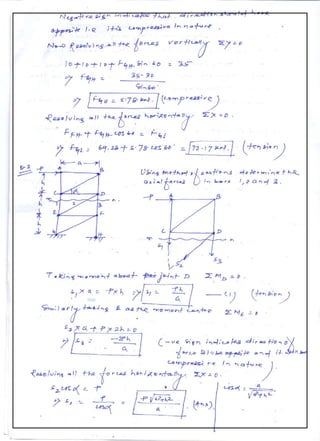 Negative sign indicates that direction should have
opposite i.e it is compressive in nature.
Now Resolving all the forces vertically Σy=0
10+10+10+F4H. Sin 60 = 35
⇒ F4H = 35-30
Sin60°
⇒ F4H = 5.78 kN. (compressive)
Resolving all the forces horizontally ΣX=0.
= 72.17 kN. (tension)
Using method of sections determine the
axial forces in bars 1, 2 and 3.
P A B
C D
S1 S2 S3
Taking moment about joint D ΣMD = 0.
S1 × a = P×h ⇒ S1 = Ph — (1) (tension)
a
Similarly taking as the moment centre
S3 × a + P × 2h = 0
⇒ S3 = -2Ph
a
(-ve sign indicates direction of
force should be opposite and it
compressive in nature)
Resolving all the forces horizontally ΣX=0.
S2 cosα = P
⇒ S2 = P
cosα
= P√a²+h²
a
(Ans).
cosα = a
√a²+h²